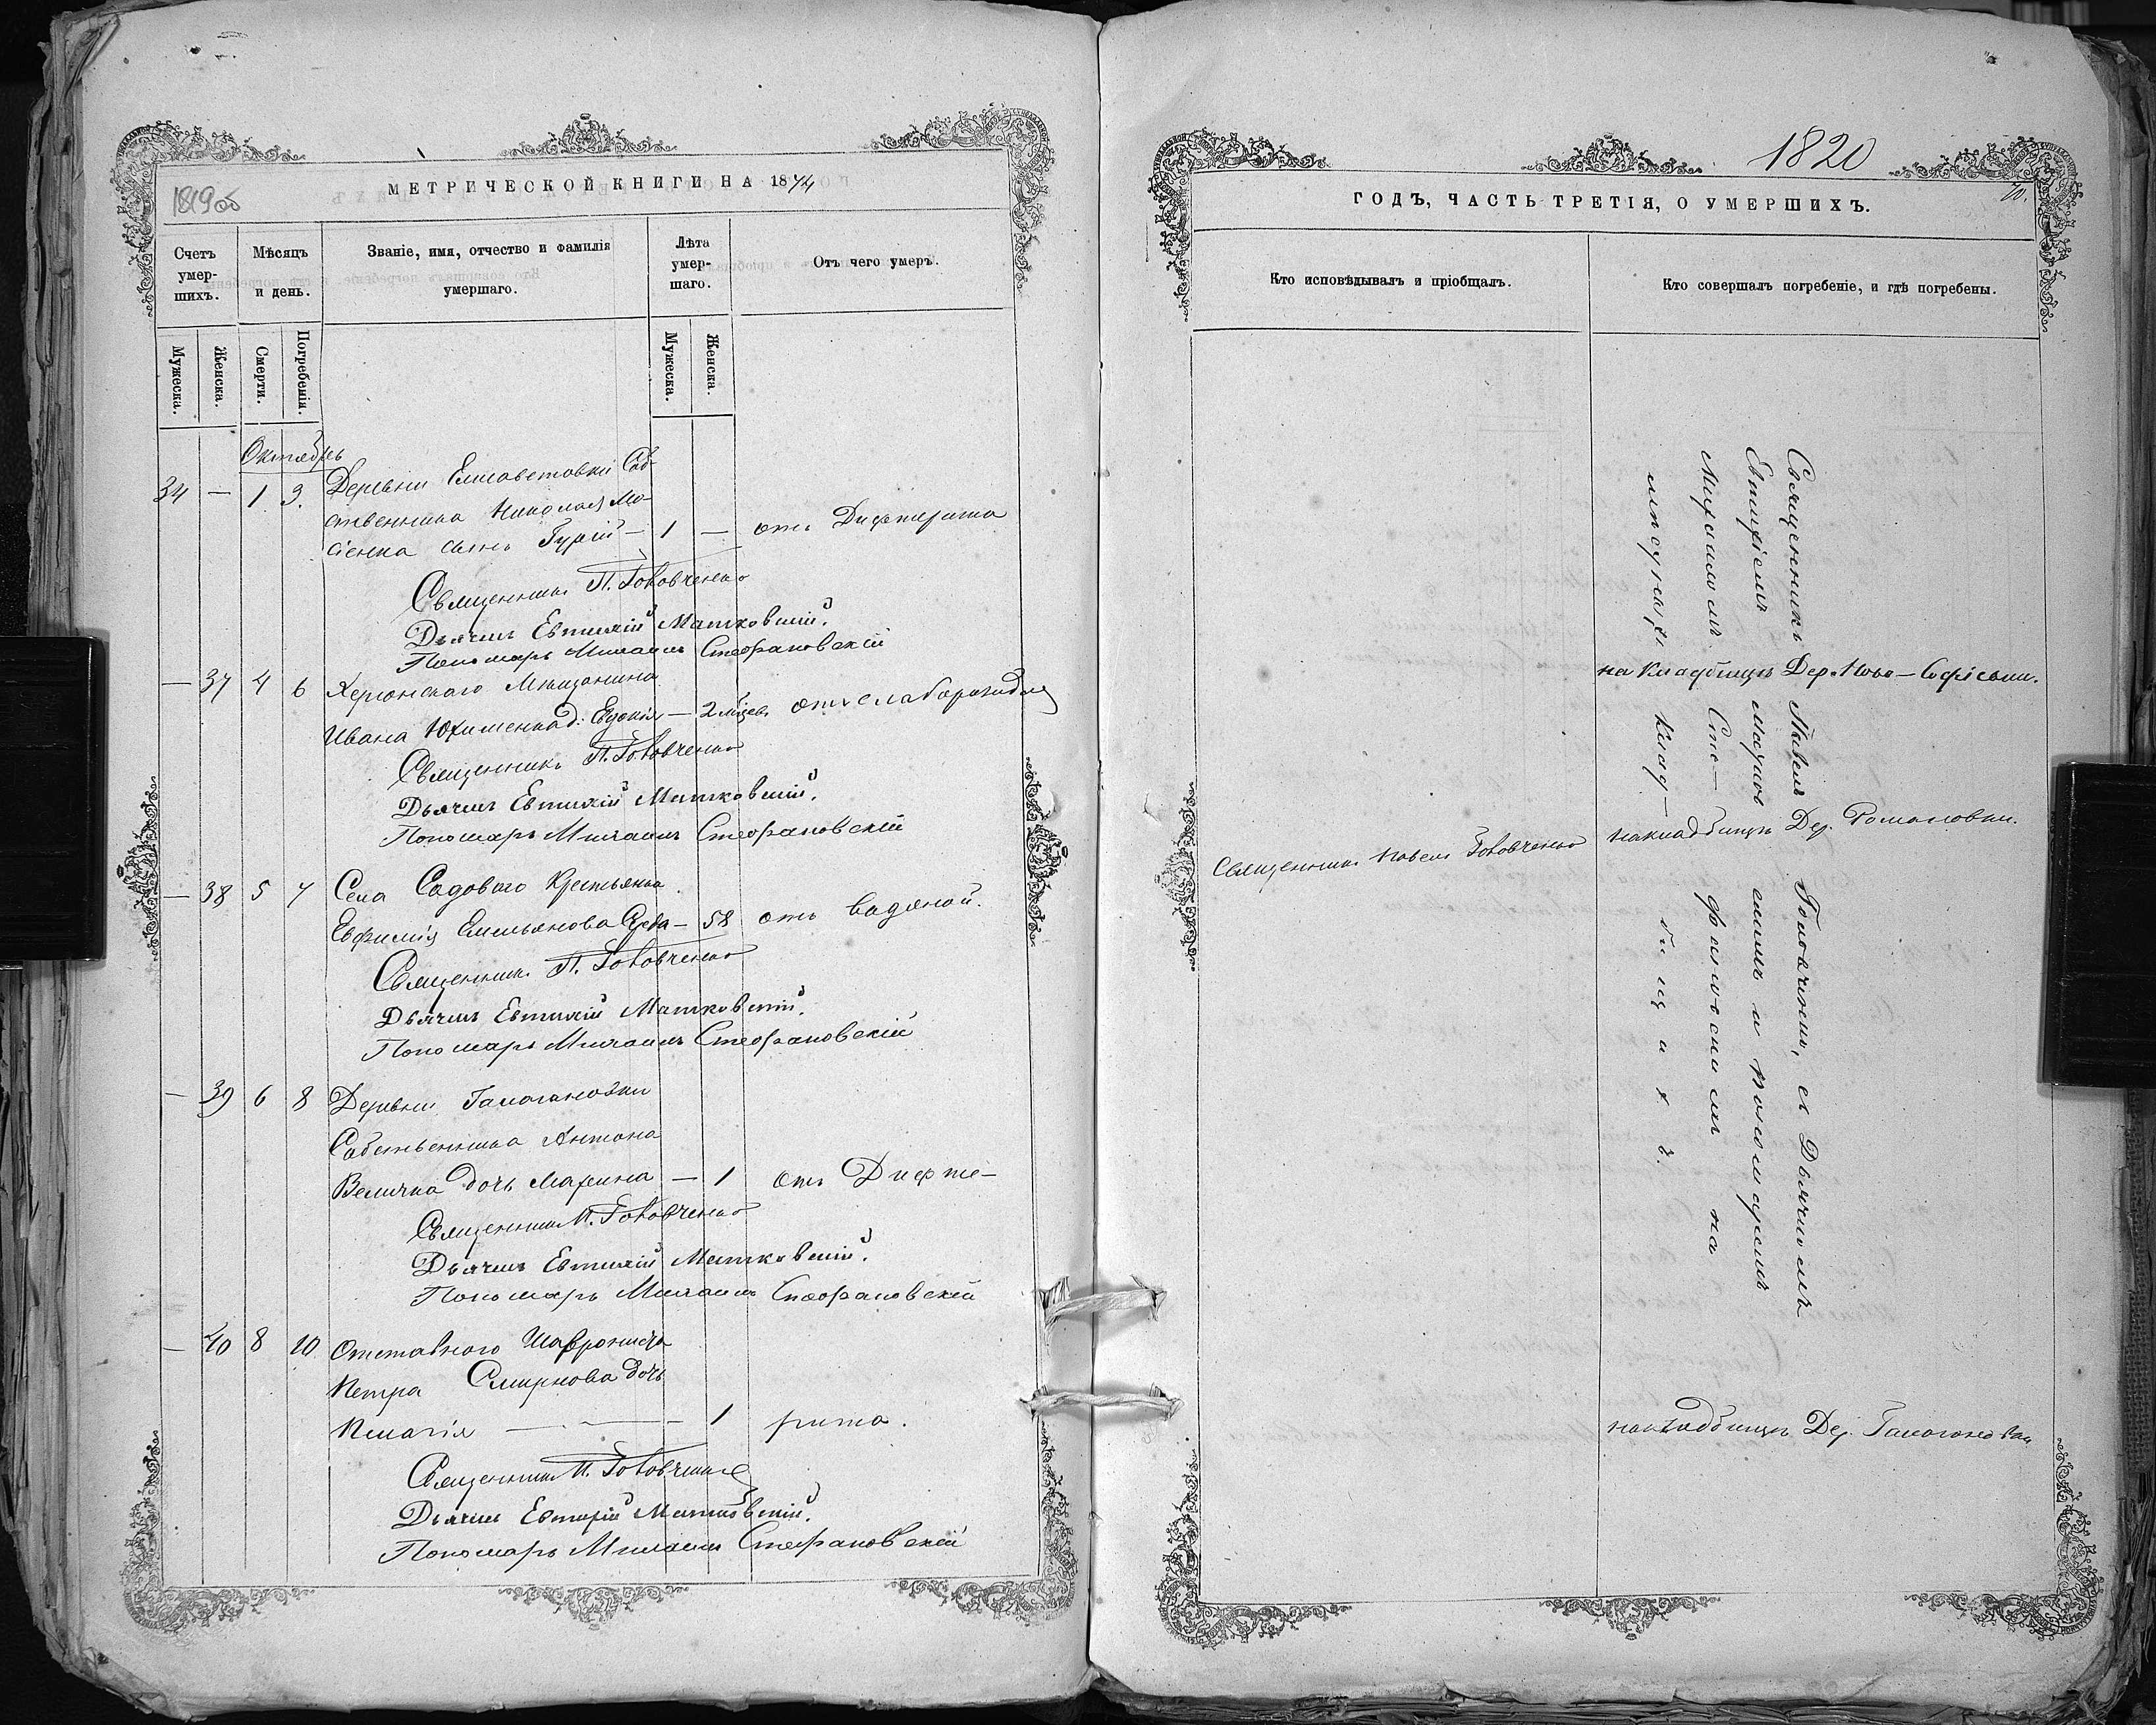 МЕТРИЧЕСКОЙ КНИГИ НА 1874
1819об
Счетъ умер-шихъ.
Мѣсяцъ и день.
Званіе, имя, отчество и фамилія умершаго.
Лѣта умер-шаго.
Отъ чего умеръ.
Мужеска.
Женска.
Смерти.
Погребенія.
Мужеска.
Женска.
Октябрь
34 — 1 3. Деревни Елисаветовки Соб-
ственника Николая Мо-
сіенка сынъ Гурій — 1 — отъ Дифтерита
Священникъ П. Головченко
Дьячекъ Евтихій Матковскій.
Пономарь Михаилъ Стефановскій
— 37 4 6 Херсонскаго Мещанина
Ивана Юхименка д: Евдокія — 2 мѣсец. отъ слаборожден
Священникъ П. Головченко
Дьячекъ Евтихій Матковскій.
Пономарь Михаилъ Стефановскій
— 38 5 7 Села Садоваго Крестьянка
Евфимія Емельянова — 58 отъ водяной.
Священникъ П. Головченко
Дьячекъ Евтихій Матковскій.
Пономарь Михаилъ Стефановскій
— 39 6 8 Деревни Галагановки
Собственника Антона
Величка дочь Марина — 1 отъ Дифте-
Священникъ П. Головченко
Дьячекъ Евтихій Матковскій.
Пономарь Михаилъ Стефановскій
— 40 8 10 Отставного
Петра Смирнова дочь
Пелагія — 1 рита.
Священникъ П. Головченко
Дьячекъ Евтихій Матковскій.
Пономарь Михаилъ Стефановскій
1820
70.
ГОДЪ, ЧАСТЬ ТРЕТІЯ, О УМЕРШИХЪ.
Кто исповѣдывалъ и пріобщалъ.
Кто совершалъ погребеніе, и гдѣ погребены.
Священникъ Павелъ Головченко
Священникъ Павелъ Головченко, съ Дьячкомъ
Евтихіемъ Матковскимъ и Пономаремъ
Михаиломъ Сте-фановскимъ на
клад-бищахъ.
на Кладбищѣ Дер. Ново-Софіевки.
на кладбищѣ Дер. Романовки.
на кладбищѣ Дер. Галагановки